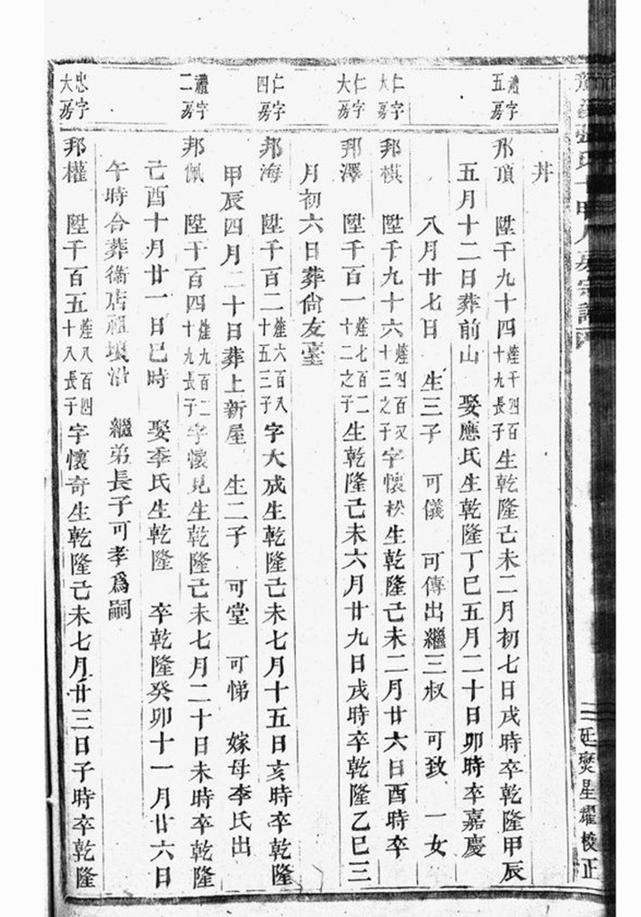 氏十甲八房宗譜
廷爕星耀校正
丼
禮字五房
邦頂 陞千九十四㷸千四百十九長子生乾隆己未二月初七日戌時卒乾隆甲辰
五月十二日葬前山 娶應氏生乾隆丁巳五月二十日卯時卒嘉慶
八月廿七日 生三子 可儀 可傳出繼三叔 可致 一女
仁字大房
邦棋 陞千九十六 四百又十三之子字懷松生乾隆己未二月廿六日酉時卒
仁字大房
邦澤 陞千百一 七百二十二之子生乾隆己未六月廿九日戌時卒乾隆乙巳三
月初六日葬尙友臺
仁字四房
邦海 陞千百二 六百八十五三子字大成生乾隆己未七月十五日亥時卒乾隆
甲辰四月二十日葬上新屋 生二子 可堂 可悌 嫁母李氏出
禮字二房
邦佩 陞千百四 九百二十九長子字懷見生乾隆己未七月二十日未時卒乾隆
己酉十月廿一日巳時 娶季氏生乾隆 卒乾隆癸卯十一月廿六日
午時合葬衞店祖墳沿 繼弟長子可孝爲嗣
忠字大房
邦權 陞千百五 八百四十八長子字懷奇生乾隆己未七月廿三日子時卒乾隆